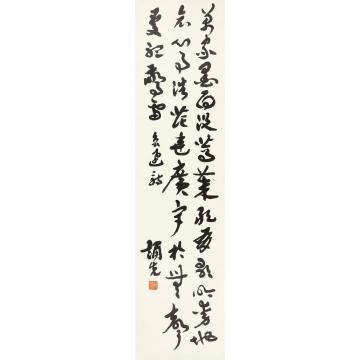 萬家墨面没蒿萊敢有歌吟動地
哀心事浩茫連廣宇於無聲
處聽驚雷 魯迅詩